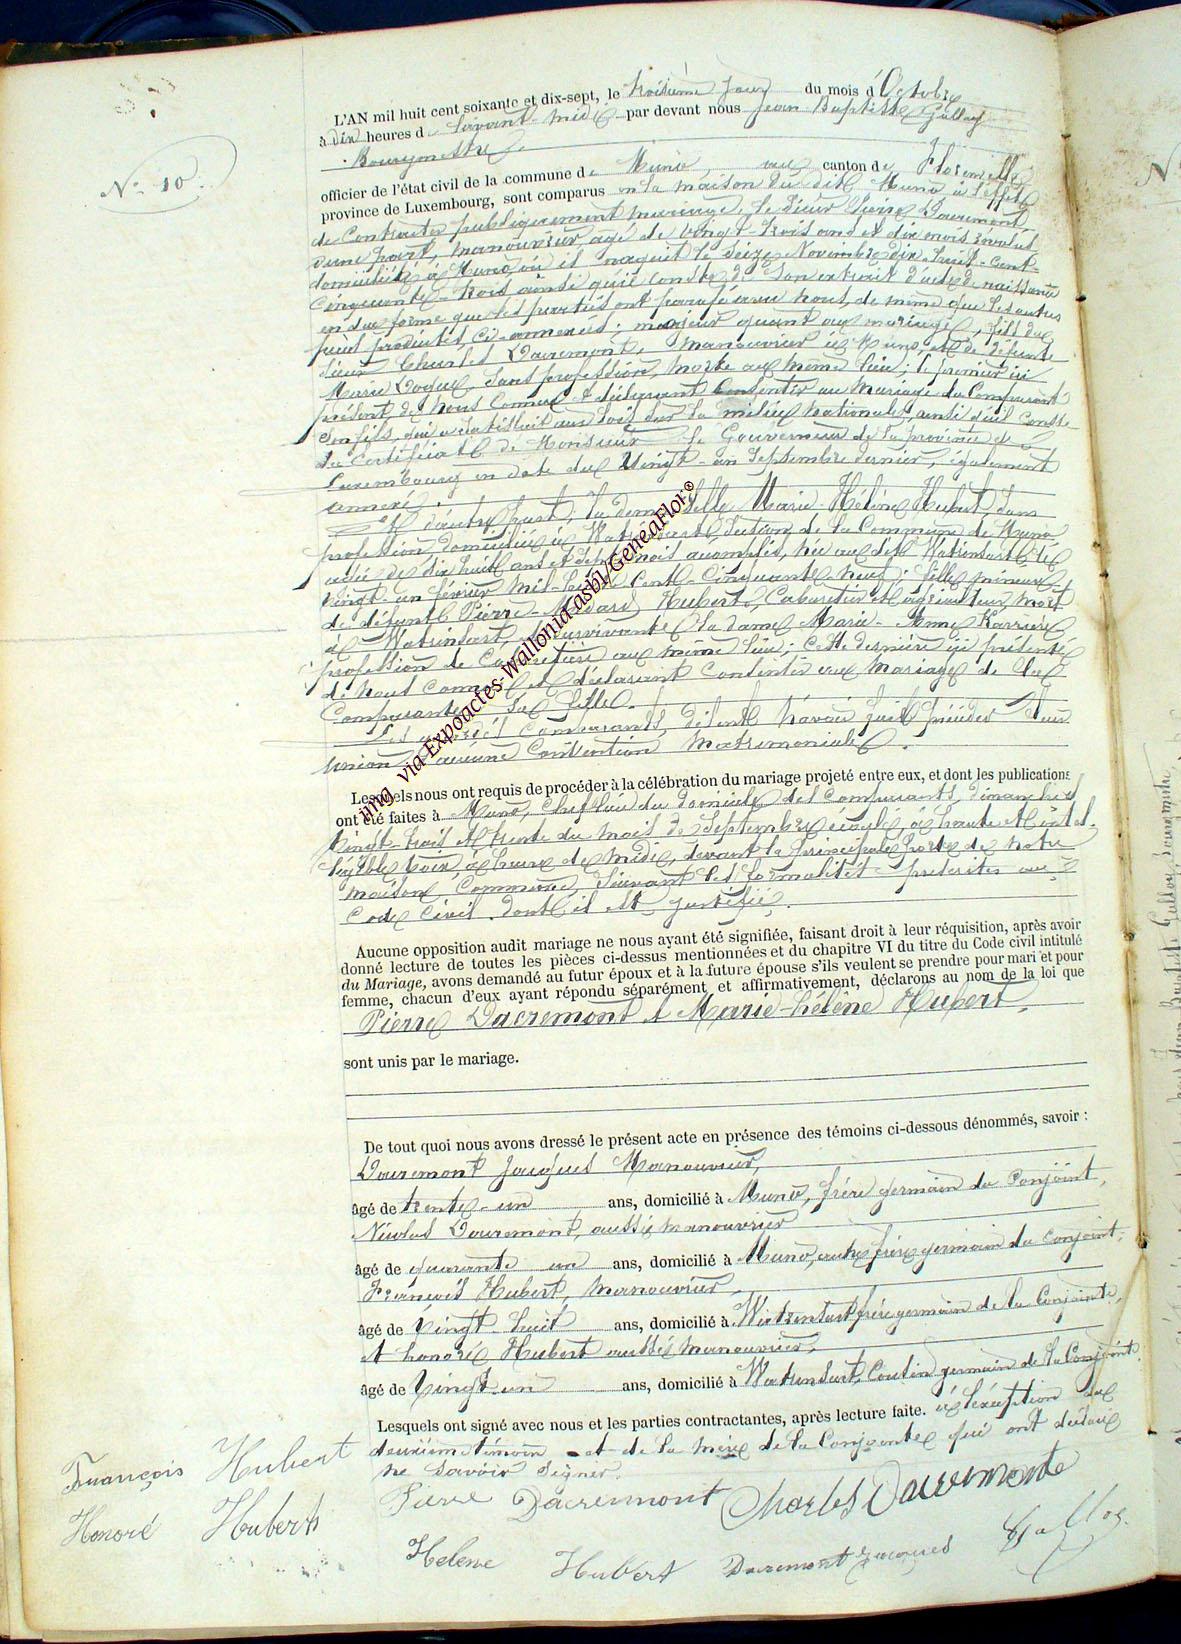 N° 10.
L'AN mil huit cent soixante et dix-sept, le troisième jour du mois d'Octobre
à dix heures d avant-midi par devant nous Jean Baptiste Gulloy
Bourgmestre,
officier de l'état civil de la commune de Muno, au canton de Florenville
province de Luxembourg, sont comparus en la maison du dit Muno à l'effet
de contracter publiquement mariage, le sieur Pierre Dacremont,
d'une part, manouvrier, agé de vingt-trois ans et dix mois révolus
domicilié à Muno, où il naquit le seize Novembre dix-huit-cent-
cinquante-trois ainsi qu'il conste de son extrait d'acte de naissance
en due forme que les parties ont parafé avec nous, de même que les autres
pièces produites, ci-annexées; majeur quant au mariage, fils du
sieur Charles Dacremont, manouvrier à Muno, et de défunte
Marie sans profession, morte au même lieu; le premier ici
présent de nous connu & déclarant consentir au mariage du comparant
son fils, qui a satisfait aux lois sur la milice nationale, ainsi qu'il conste
du certificat de Monsieur le Gouverneur de la province de
Luxembourg en date du vingt-un Septembre dernier, également
annexé.
Et d'autre part, la demoiselle Marie Hélène Hubert, sans
profession, domiciliée à Watrinsart, section de la commune de Muno
agée de dix huit ans et sept mois accomplis, née au dit Watrinsart le
vingt-un février mil-huit cent-cinquante neuf; fille mineure
de défunt Pierre-Médard Hubert, cabaretier et agriculteur, mort
à Watrinsart, & survivante la dame Marie-Anne
profession de cabaretière au même lieu; cette dernière ici présente
de nous connue et déclarant consentir au mariage de la
comparante sa fille.
Les comparants, disent n'avoir fait précéder leur
union d'aucune convention matrimoniale.
Lesquels nous ont requis de procéder à la célébration du mariage projeté entre eux, et dont les publications
ont été faites à Muno, chef lieu du domicile des comparants, dimanches
vingt-trois et trente du mois de Septembre écoulé, à haute et intel-
ligible voix, à heure de midi, devant la principale porte de notre
maison commune, suivant les formalités prescrites au
Code civil. dont il est justifié.
Aucune opposition audit mariage ne nous ayant été signifiée, faisant droit à leur réquisition, après avoir
donné lecture de toutes les pièces ci-dessus mentionnées et du chapitre VI du titre du Code civil intitulé
du Mariage, avons demandé au futur époux et à la future épouse s'ils veulent se prendre pour mari et pour
femme, chacun d'eux ayant répondu séparément et affirmativement, déclarons au nom de la loi que
Pierre Dacremont et Marie-hélène Hubert,
sont unis par le mariage.
De tout quoi nous avons dressé le présent acte en présence des témoins ci-dessous dénommés, savoir :
Dacremont Jacques Manouvrier,
âgé de trente-un ans, domicilié à Muno, frère germain du conjoint,
Nicolas Dacremont, aussi manouvrier
âgé de quarante un ans, domicilié à Muno, autre frère germain du conjoint;
François Hubert, manouvrier,
âgé de vingt-huit ans, domicilié à Watrinsart, frère germain de la conjointe,
et honoré Hubert aussi manouvrier,
âgé de vingt-un ans, domicilié à Watrinsart, cousin germain de la conjointe.
Lesquels ont signé avec nous et les parties contractantes, après lecture faite. à l'exception du
deuxième témoin et de la mère de la conjointe qui ont déclaré
ne savoir signer.
François Hubert
Honoré Hubert
Pierre Dacremont Charles Dacremont
Helene Hubert Dacremont Jacques Gulloy.
img via Expoactes-Wallonia asbl/GeneaFlor©